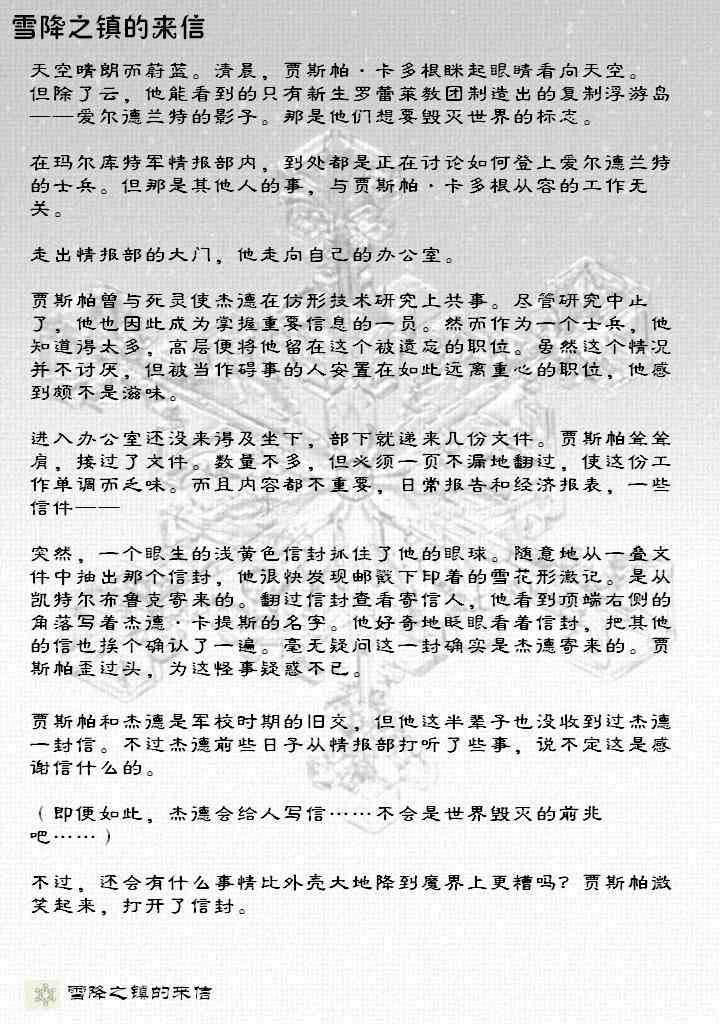 雪降之镇的来信
天空晴朗而蔚蓝。清晨，贾斯帕·卡多根眯起眼睛看向天空。
但除了云，他能看到的只有新生罗蕾莱教团制造出的复制浮游岛
——爱尔德兰特的影子。那是他们想要毁灭世界的标志。
在玛尔库特军情报部内，到处都是正在讨论如何登上爱尔德兰特
的士兵。但那是其他人的事，与贾斯帕·卡多根从容的工作无
关。
走出情报部的大门，他走向自己的办公室。
贾斯帕曾与死灵使杰德在仿形技术研究上共事。尽管研究中止
了，他也因此成为掌握重要信息的一员。然而作为一个士兵，他
知道得太多，高层便将他留在这个被遗忘的职位。虽然这个情况
并不讨厌，但被当作碍事的人安置在如此远离重心的职位，他感
到颇不是滋味。
进入办公室还没来得及坐下，部下就递来几份文件。贾斯帕耸耸
肩，接过了文件。数量不多，但必须一页不漏地翻过，使这份工
作单调而乏味。而且内容都不重要，日常报告和经济报表，一些
信件——
突然，一个眼生的浅黄色信封抓住了他的眼球。随意地从一叠文
件中抽出那个信封，他很快发现邮戳下印着的雪花形徽记。是从
凯特尔布鲁克寄来的。翻过信封查看寄信人，他看到顶端右侧的
角落写着杰德·卡提斯的名字。他好奇地眨眼看着信封，把其他
的信也挨个确认了一遍。毫无疑问这一封确实是杰德寄来的。贾
斯帕歪过头，为这怪事疑惑不已。
贾斯帕和杰德是军校时期的旧交，但他这半辈子也没收到过杰德
一封信。不过杰德前些日子从情报部打听了些事，说不定这是感
谢信什么的。
（即便如此，杰德会给人写信……不会是世界毁灭的前兆
吧……）
不过，还会有什么事情比外壳大地降到魔界上更糟吗？贾斯帕微
笑起来，打开了信封。
雪降之镇的来信